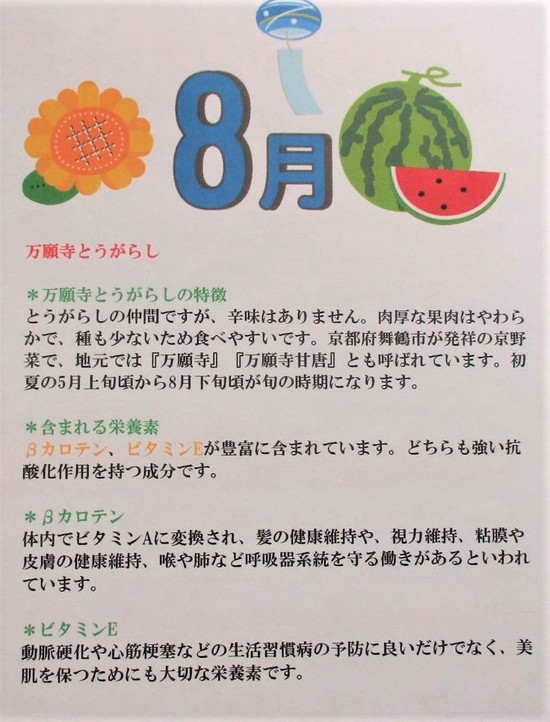 8月
万願寺とうがらし
＊万願寺とうがらしの特徴
とうがらしの仲間ですが、辛味はありません。肉厚な果肉はやわら
かで、種も少ないため食べやすいです。京都府舞鶴市が発祥の京野
菜で、地元では『万願寺』『万願寺甘唐』とも呼ばれています。初
夏の5月上旬頃から8月下旬頃が旬の時期になります。
＊含まれる栄養素
βカロテン、ビタミンEが豊富に含まれています。どちらも強い抗
酸化作用を持つ成分です。
＊βカロテン
体内でビタミンAに変換され、髪の健康維持や、視力維持、粘膜や
皮膚の健康維持、喉や肺など呼吸器系統を守る働きがあるといわれ
ています。
＊ビタミンE
動脈硬化や心筋梗塞などの生活習慣病の予防に良いだけでなく、美
肌を保つためにも大切な栄養素です。